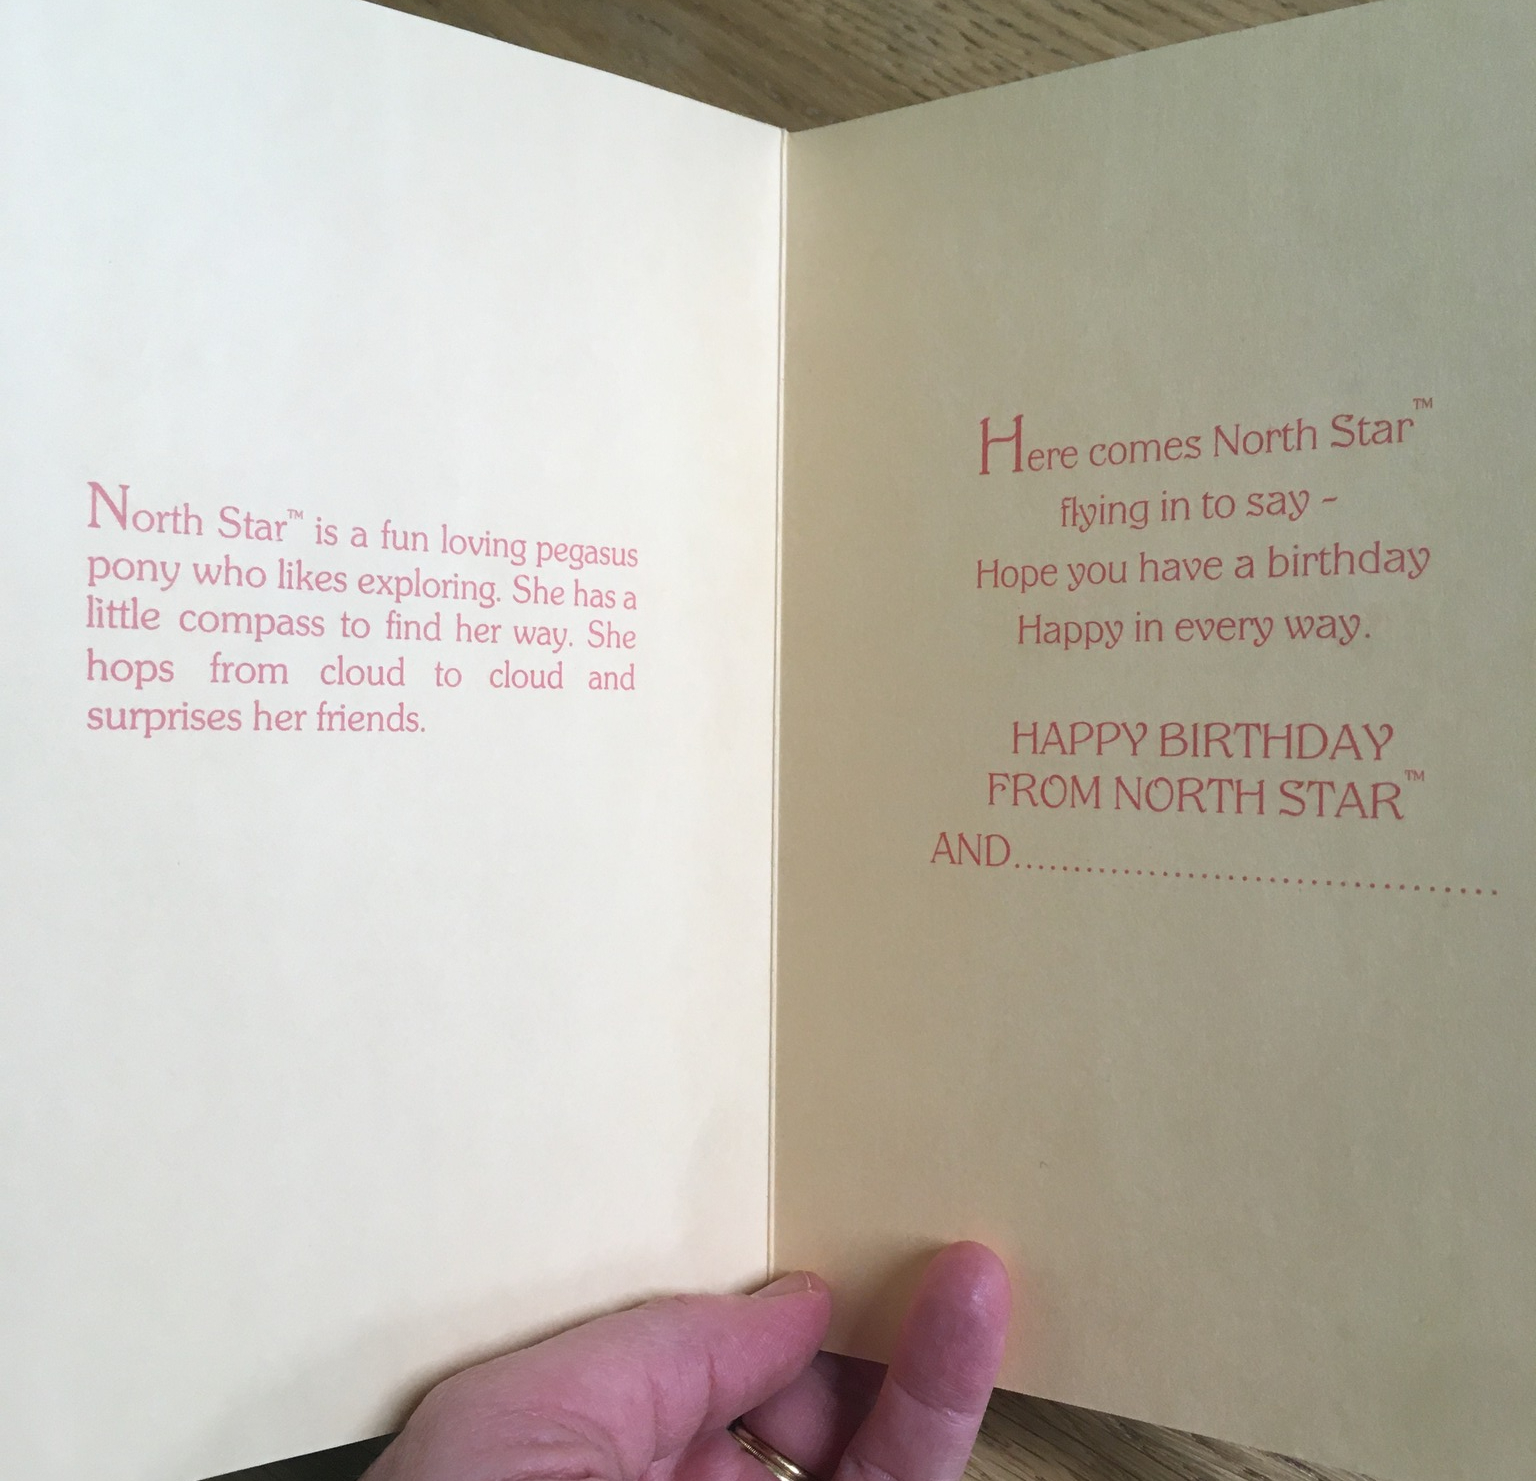 North Star™ is a fun loving pegasus
pony who likes exploring. She has a
little compass to find her way. She
hops from cloud to cloud and
surprises her friends.
Here comes North Star™
flying in to say -
Hope you have a birthday
Happy in every way.
HAPPY BIRTHDAY
FROM NORTH STAR™
AND........................................